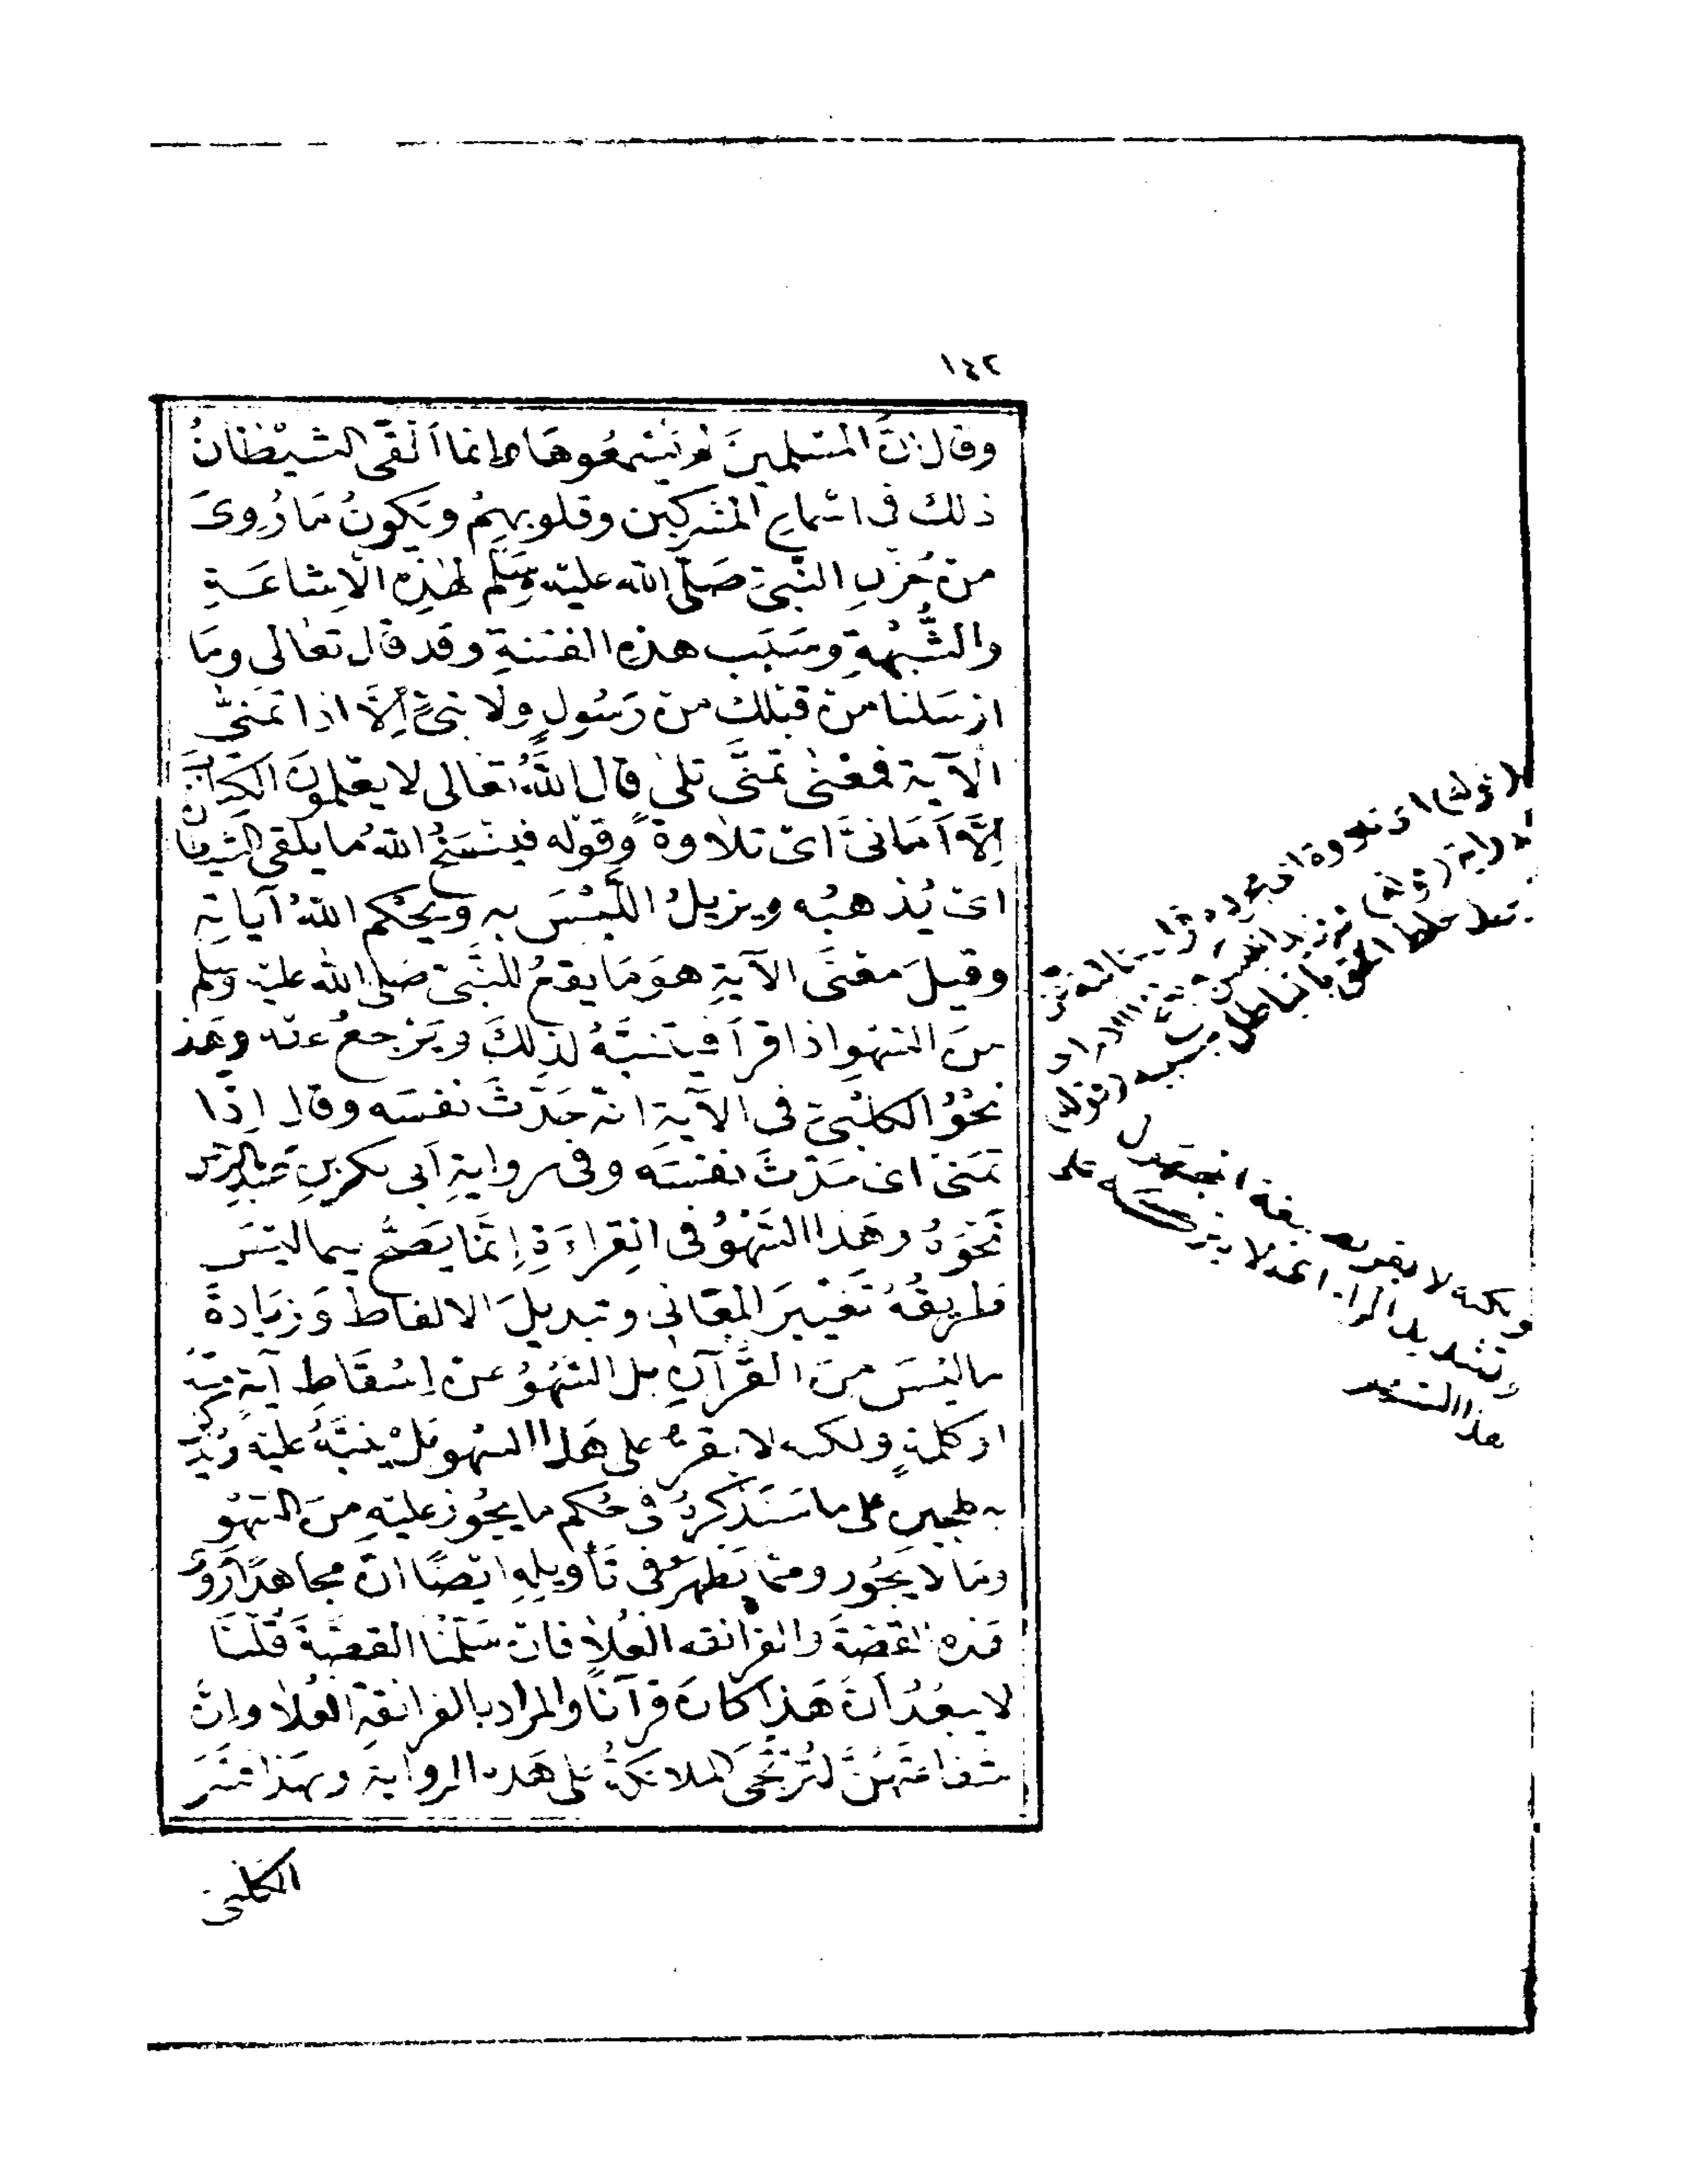 ١٤٢
وقال انَّ المسْلِمينَ لم يَسْمَعُوهَا وانما اَلْقَى الشيْطَانُ
ذلك فى اسْماعِ المشركين وقلوبهِمْ ويَكونُ مَا رُوِىَ
من حُزْنِ النَّبِىّ صَلّى الله عليْه وسَلّم لهٰذِه الْاِشاعَةِ
والشُّبْهَةِ وسَبَب هذهِ الفتنةِ وقد قال تعالى ومَا
ارْسَلنا منْ قبْلك منْ رَسُولٍ ولا نبىٍّ اِلَّا اذا تمَنىَّ
الْآية فمعْنى تمنَّى تلىٰ قال اللهُ تعالى لا يعْلمونَ الكِتَابَ
اِلَّا اَمَانىَّ اىْ تلاوةً وقوْله فينْسَخُ اللهُ ما يلقى الشيطان
اىْ يُذْهبُه ويزيلُ اللَّبْسَ به ويُحْكم اللهُ آياتِهِ
وقيلَ معْنَى الآيةِ هوَ مَا يقعُ للنَّبىّ صَلى الله عليْه وسلم
منَ السّهْوِ اذا قرَأَ فيتنبَّهُ لذلِكَ ويَرْجعُ عنْه وهَذ
نحْوُ الكلْبىّ فى الآيةِ انّه حَدَّثَ نفسَه وقال اِذَا
تمَنىّ اىْ حَدّثَ نفْسَه وفى روايةِ اَبى بكر بنِ عبْدِ الرّحْمٰن
نَحْوَهُ وهَذا السَّهْوُ فى القِراءَةِ اِنَّمَا يَصِحُّ فيما ليْسَ
طريقُهُ تَغْييرَ المعَانى وتبديلَ الالفاظ وَزِيَادةَ
ما ليْسَ منَ القُرْآنِ بل السّهْوُ عنْ اِسْقَاطِ آيةٍ منْه
اوْ كلمةٍ ولكنه لا يقرُّ على هَذا السّهو بَلْ ينبَّهُ عليْه ويُذَكَّر
به للحينِ على ما سَنَذْكرُهُ فى حُكم ما يجُوز عليْهِ منَ السّهْوِ
ومَا لا يَجُوز وممّا يَظهَرُ فى تَأْويلِهِ ايْضًا انّ مجاهدًا رَوَى
هذه القصّةَ والغرانقه العُلاٰ فانْ سَلّمْنَا القصّةَ قُلْنَا
لا يبعُدُ اَنَّ هَذا كانَ قرآنًا والمراد بالغرانقةِ العُلا وانَّ
شفاعَتَهُنَّ لَتُرْتَجَى الملائكةُ على هَذه الرواية وبهَذا فَسَّرَ
الكلبىّ
خلط الحق بالباطل بسببه (قوله)
ولكنه لا يقر
وتشديد الراء اى لا يترك على
هذا السهو